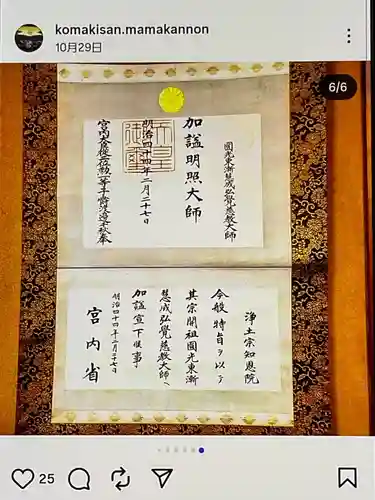 komakisan.mamakannon
10月29日
6/6
圓光東漸慧成弘覺慈教大師
加諡明照大師
明治四十四年二月二十七日
天皇御璽
宮内大臣從二位勲一等子爵渡邊千秋奉
浄土宗知恩院
今般特旨ヲ以テ
其宗開祖圓光東漸
慧成弘覺慈教大師ヘ
加諡宣下候事
明治四十四年二月二十七日
宮内省
25